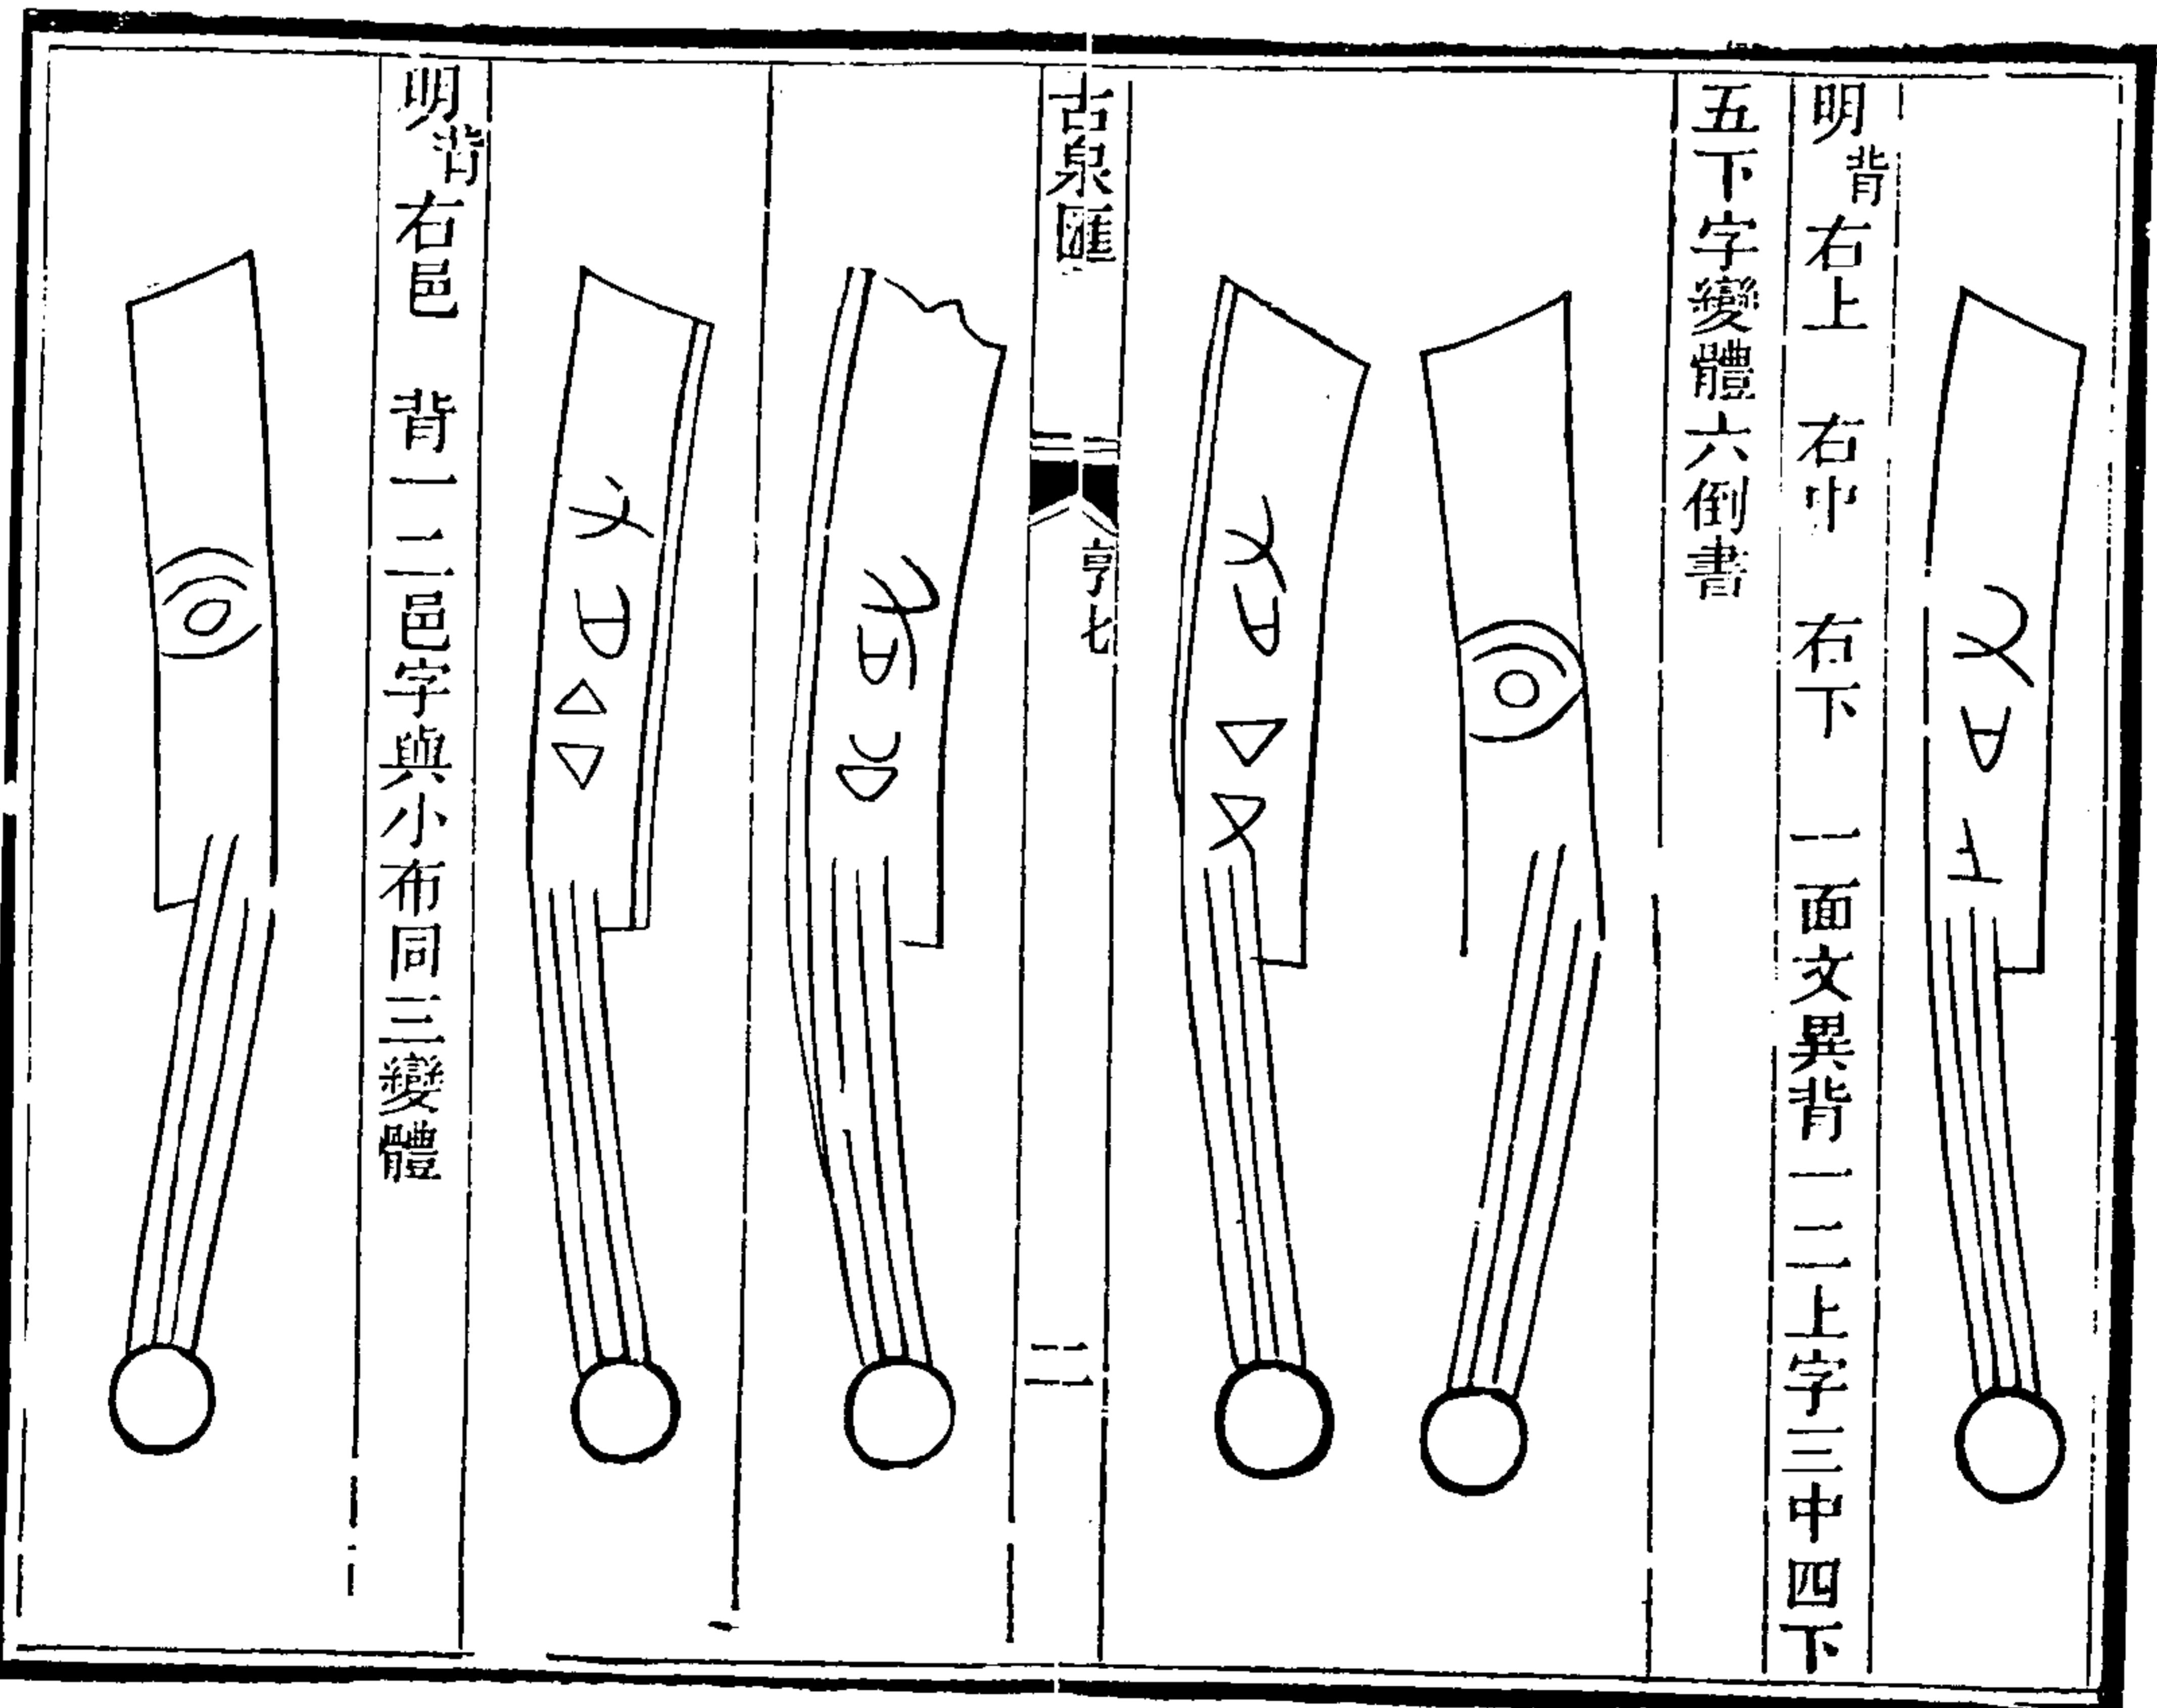 明背右上　右中　右下　一面文異背一二上字三中四下
五下字變體六倒書
古泉匯　亨七　二
明背右邑　背一二邑字與小布同三變體